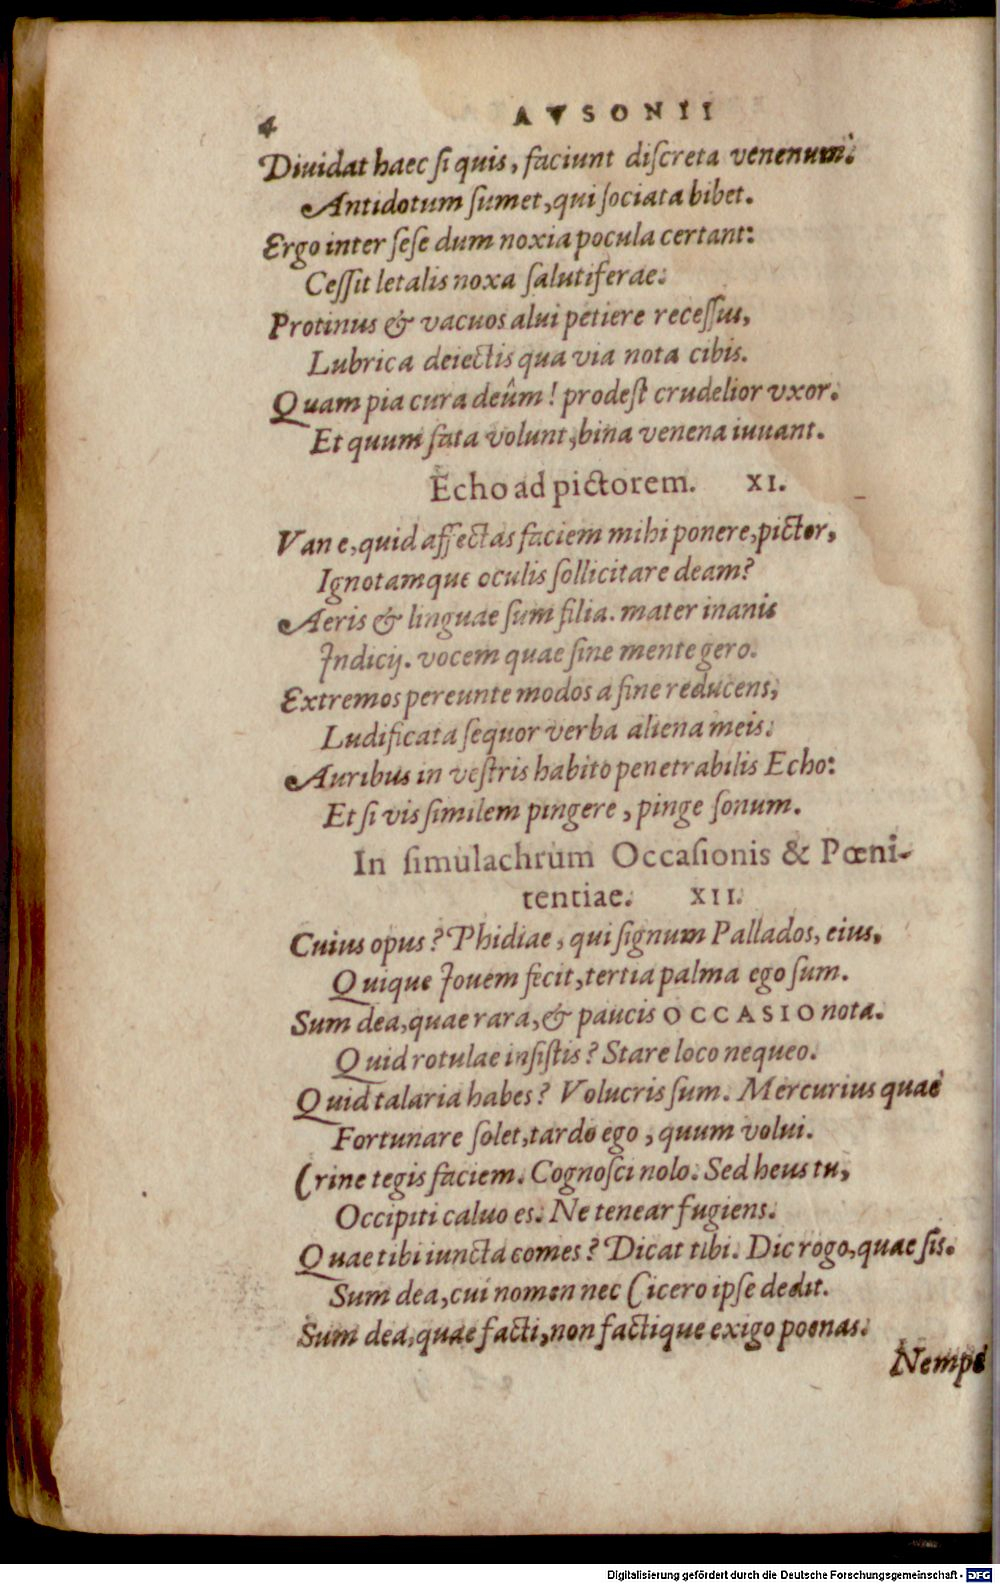 4
AVSONII
Diuidat haec si quis, faciunt discreta venenum:
Antidotum sumet, qui sociata bibet.
Ergo inter sese dum noxia pocula certant:
Cessit letalis noxa salutiferae:
Protinus & vacuos alui petiere recessus,
Lubrica deiectis qua via nota cibis.
Quam pia cura deûm! prodest crudelior vxor.
Et quum fata volunt, bina venena iuuant.
Echo ad pictorem. XI.
Vane, quid affectas faciem mihi ponere, pictor,
Ignotamque oculis sollicitare deam?
Aeris & linguae sum filia. mater inanis
Indicij. vocem quae sine mente gero.
Extremos pereunte modos a fine reducens,
Ludificata sequor verba aliena meis.
Auribus in vestris habito penetrabilis Echo:
Et si vis similem pingere, pinge sonum.
In simulachrum Occasionis & Pœni-
tentiae. XII.
Cuius opus? Phidiae, qui signum Pallados, eius,
Quique Iouem fecit, tertia palma ego sum.
Sum dea, quae rara, & paucis OCCASIO nota.
Quid rotulae insistis? Stare loco nequeo.
Quid talaria habes? Volucris sum. Mercurius quae
Fortunare solet, tardo ego, quum volui.
Crine tegis faciem. Cognosci nolo. Sed heus tu,
Occipiti caluo es. Ne tenear fugiens.
Quae tibi iuncta comes? Dicat tibi. Dic rogo, quae sis.
Sum dea, cui nomen nec Cicero ipse dedit.
Sum dea, quae facti, non factique exigo poenas.
Nempe
Digitalisierung gefördert durch die Deutsche Forschungsgemeinschaft - DFG